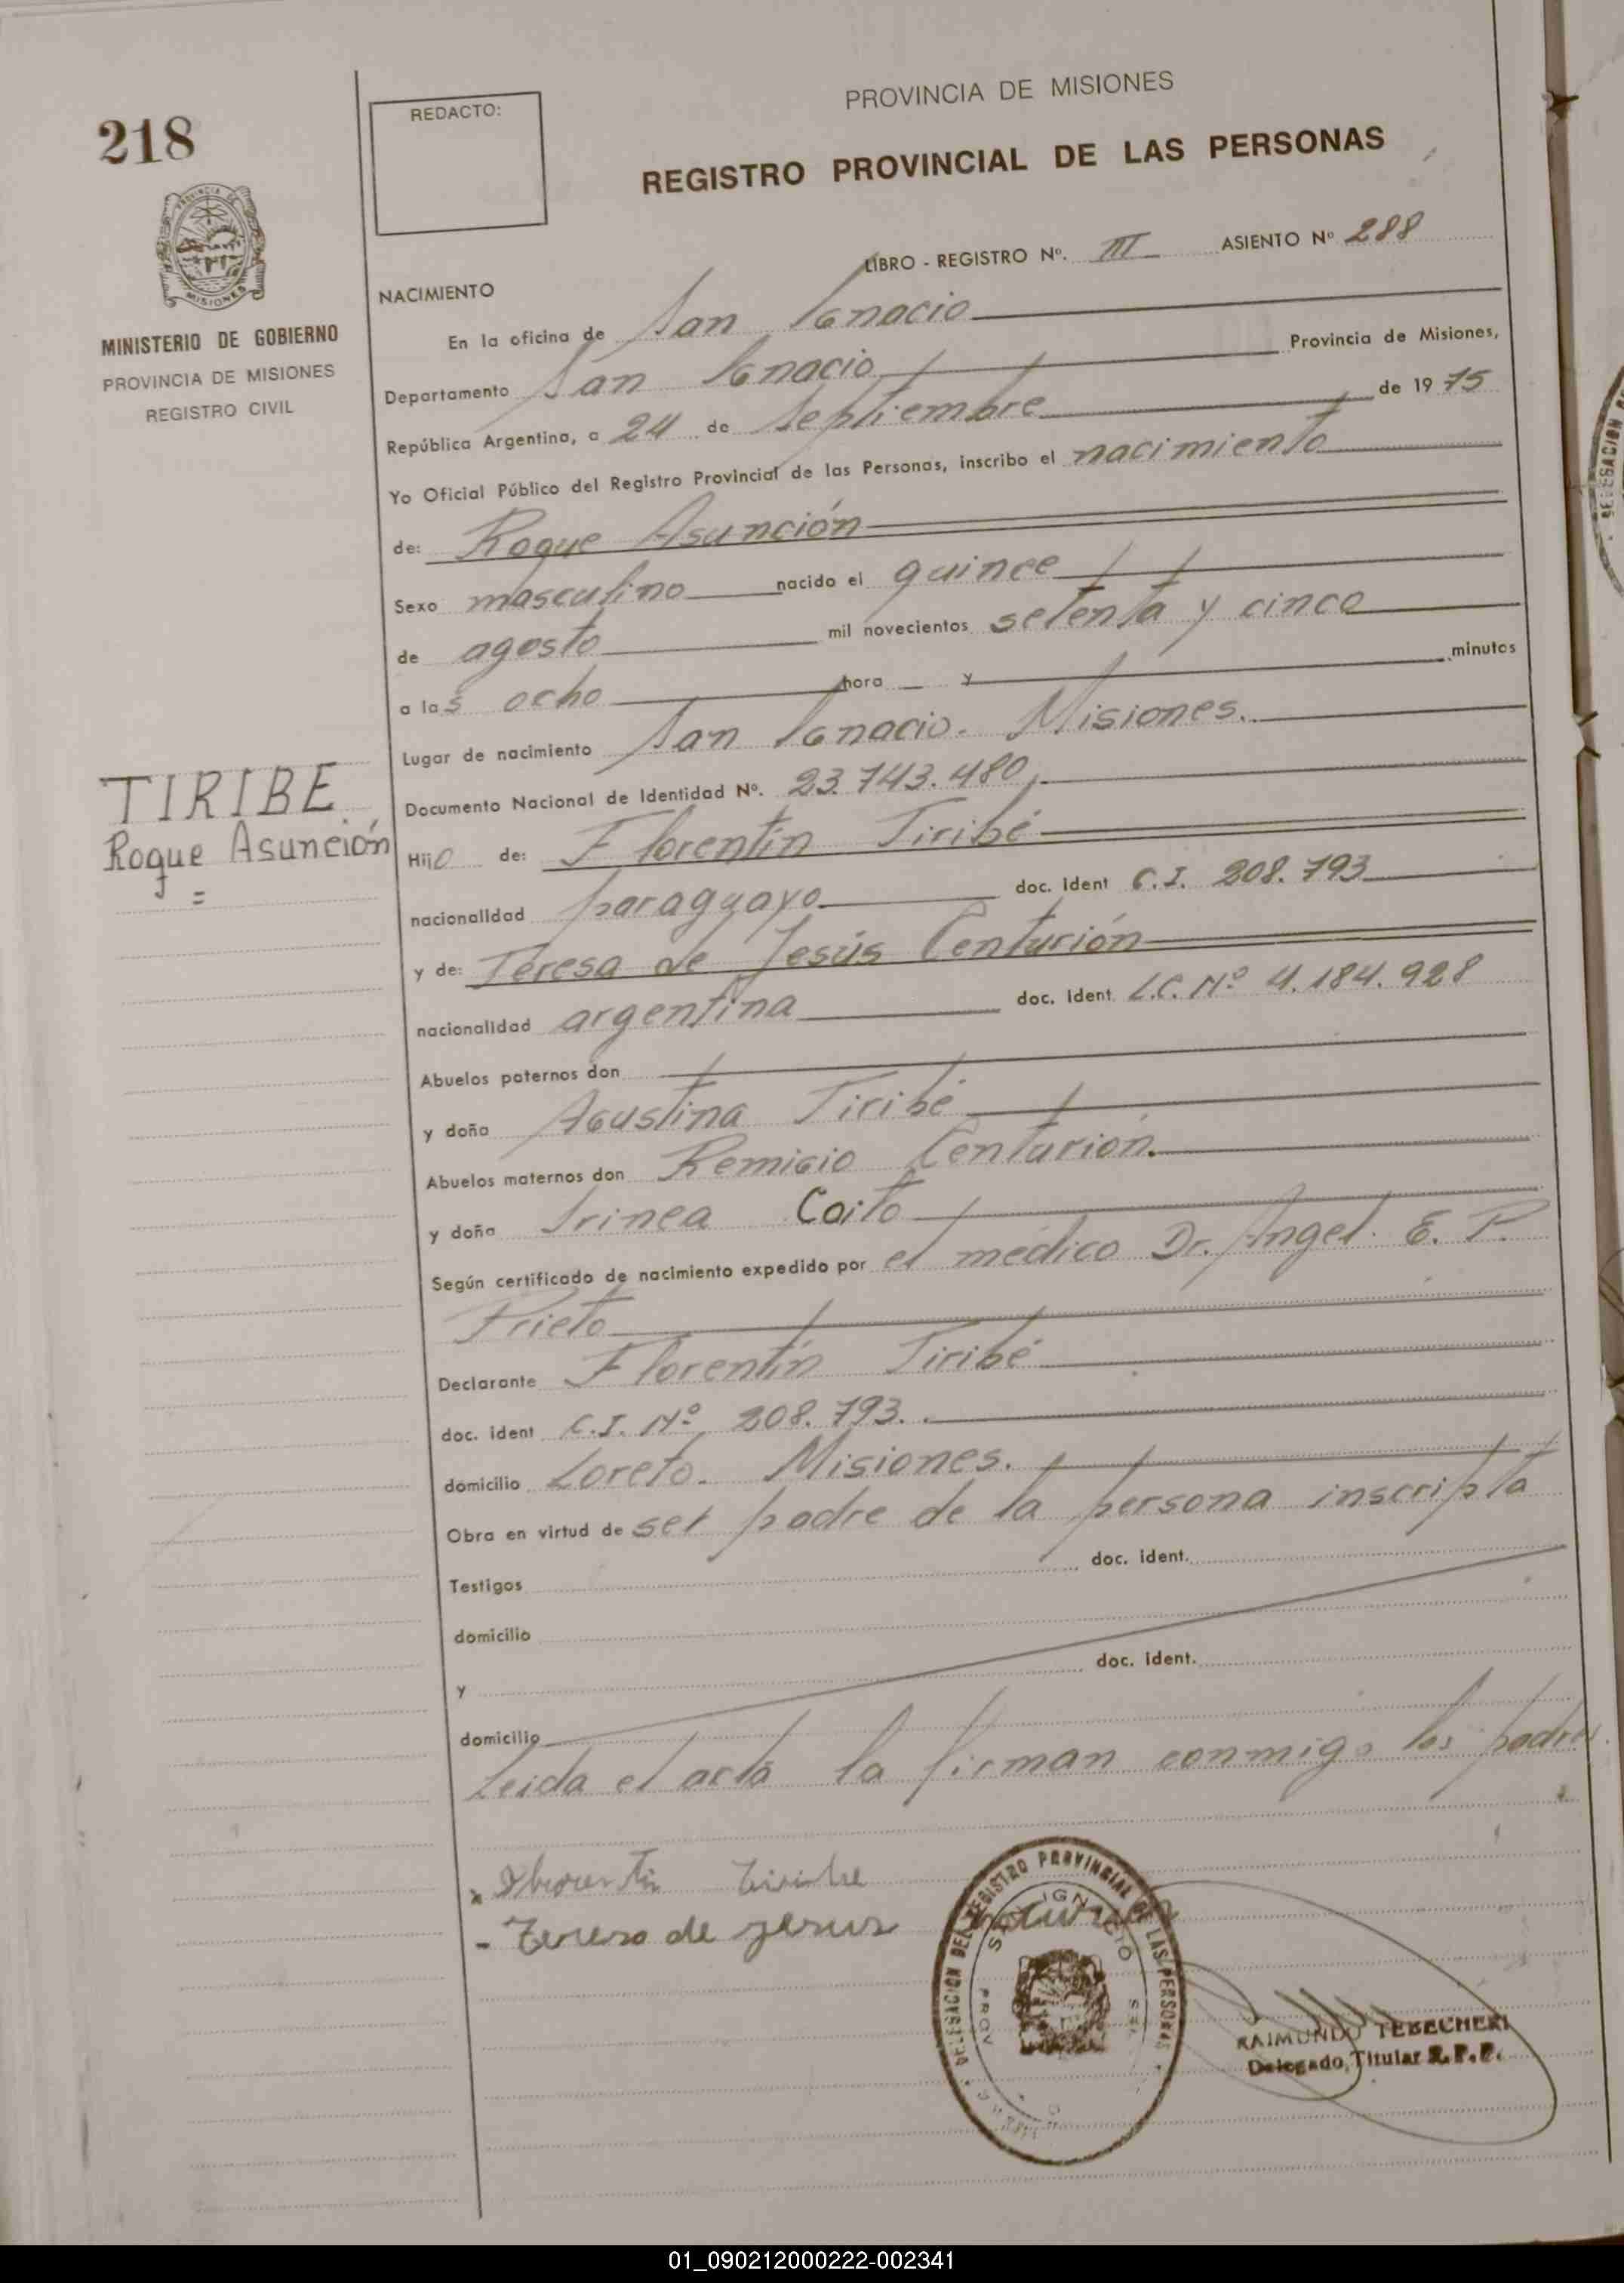 218
REDACTO:
PROVINCIA DE MISIONES
REGISTRO PROVINCIAL DE LAS PERSONAS
PROVINCIA DE
MISIONES
MINISTERIO DE GOBIERNO
PROVINCIA DE MISIONES
REGISTRO CIVIL
LIBRO - REGISTRO Nº. III ASIENTO Nº 288
NACIMIENTO
En la oficina de San Ignacio
Departamento San Ignacio Provincia de Misiones,
República Argentina, a 24 de septiembre de 1975
Yo Oficial Público del Registro Provincial de las Personas, inscribo el nacimiento
de: Roque Asunción
Sexo masculino nacido el quince
de agosto mil novecientos setenta y cinco
a las ocho hora — y minutos
Lugar de nacimiento San Ignacio. Misiones.
Documento Nacional de Identidad Nº. 23.743.480
TIRIBE
Roque Asunción
Hijo de: Florentín Tiribé
nacionalidad paraguayo doc. ident C.I. 208.793
y de: Teresa de Jesús Centurión
nacionalidad argentina doc. ident. L.C. Nº 4.184.928
Abuelos paternos don
y doña Agustina Tiribé
Abuelos maternos don Remigio Centurión.
y doña Irinea Coito
Según certificado de nacimiento expedido por el médico Dr. Angel E. P.
Prieto
Declarante Florentín Tiribé
doc. ident C.I. Nº 208.793.
domicilio Loreto. Misiones.
Obra en virtud de ser padre de la persona inscripta
Testigos doc. ident.
domicilio
y doc. ident.
domicilio
Leida el acta la firman conmigo los padres.
Tiribe
- Teresa de Jesus
DELEGACION DEL REGISTRO PROVINCIAL DE LAS PERSONAS
SAN IGNACIO
PROV
RAIMUNDO TEBECHERI
Delegado Titular R.P.P.
DELEGACION
01_090212000222-002341